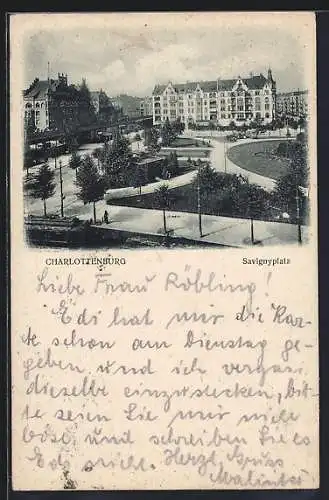 CHARLOTTENBURG Savignyplatz
Liebe Frau Röbling!
Edi hat mir die Kar-
te schon am Dienstag ge-
geben und ich vergaß
dieselbe einzustecken, bit-
te seien Sie mir nicht
böse und schreiben Sie es
Edo nicht. Herzl. Gruss